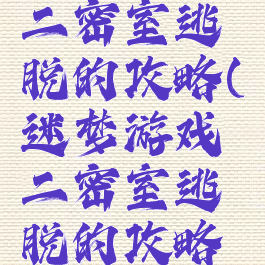 二密室逃
脱的攻略(
迷梦游戏
二密室逃
脱的攻略